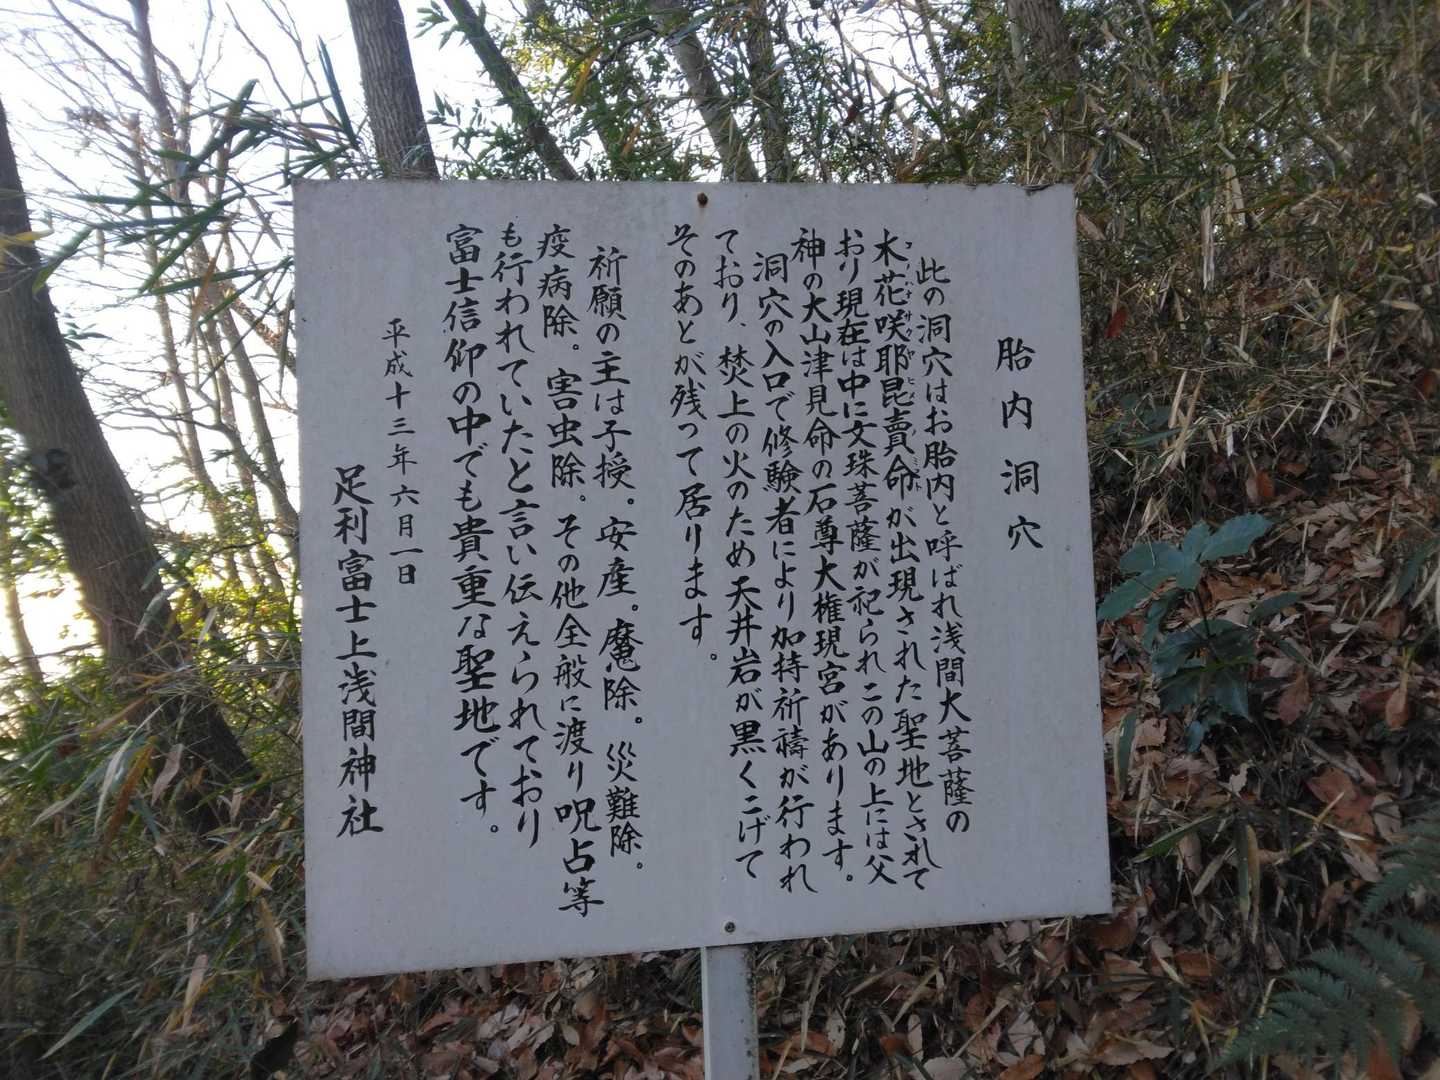 胎内洞穴
此の洞穴はお胎内と呼ばれ浅間大菩薩の
木花咲耶昆賣命が出現された聖地とされて
おり現在は中に文珠菩薩が祀られこの山の上には父
神の大山津見命の石尊大権現宮があります。
洞穴の入口で修験者により加持祈禱が行われ
ており、焚上の火のため天井岩が黒くこげて
そのあとが残って居ります。
祈願の主は子授。安産。魔除。災難除。
疫病除。害虫除。その他全般に渡り呪占等
も行われていたと言い伝えられており
富士信仰の中でも貴重な聖地です。
平成十三年六月一日
足利富士上浅間神社